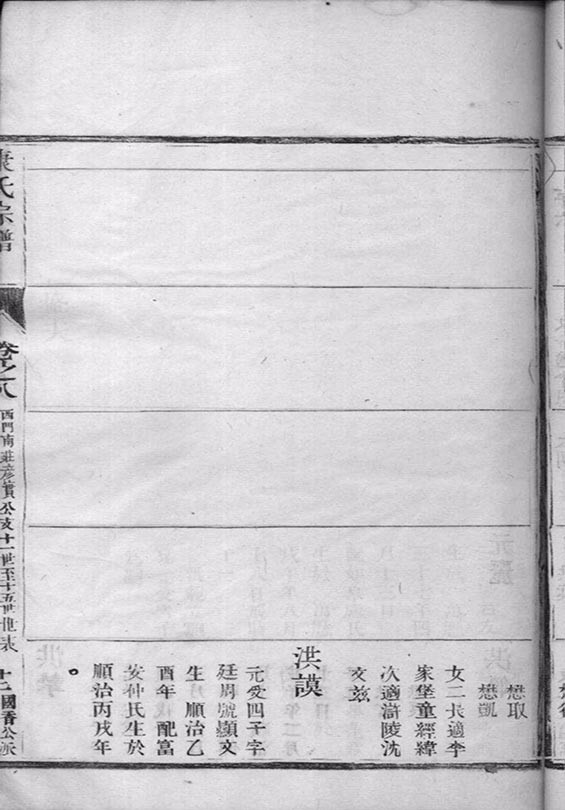 懋取
懋凱
女二長適李
家堡童經緯
次適滸陵沈
文彪
洪謨
元爻四子字
廷周號顯文
生順治乙
酉年 配富
安仲氏生於
順治丙戌年
。
氏宗譜
卷之八
西門南莊彦賓公支十一世至十五世世表
國晋公派